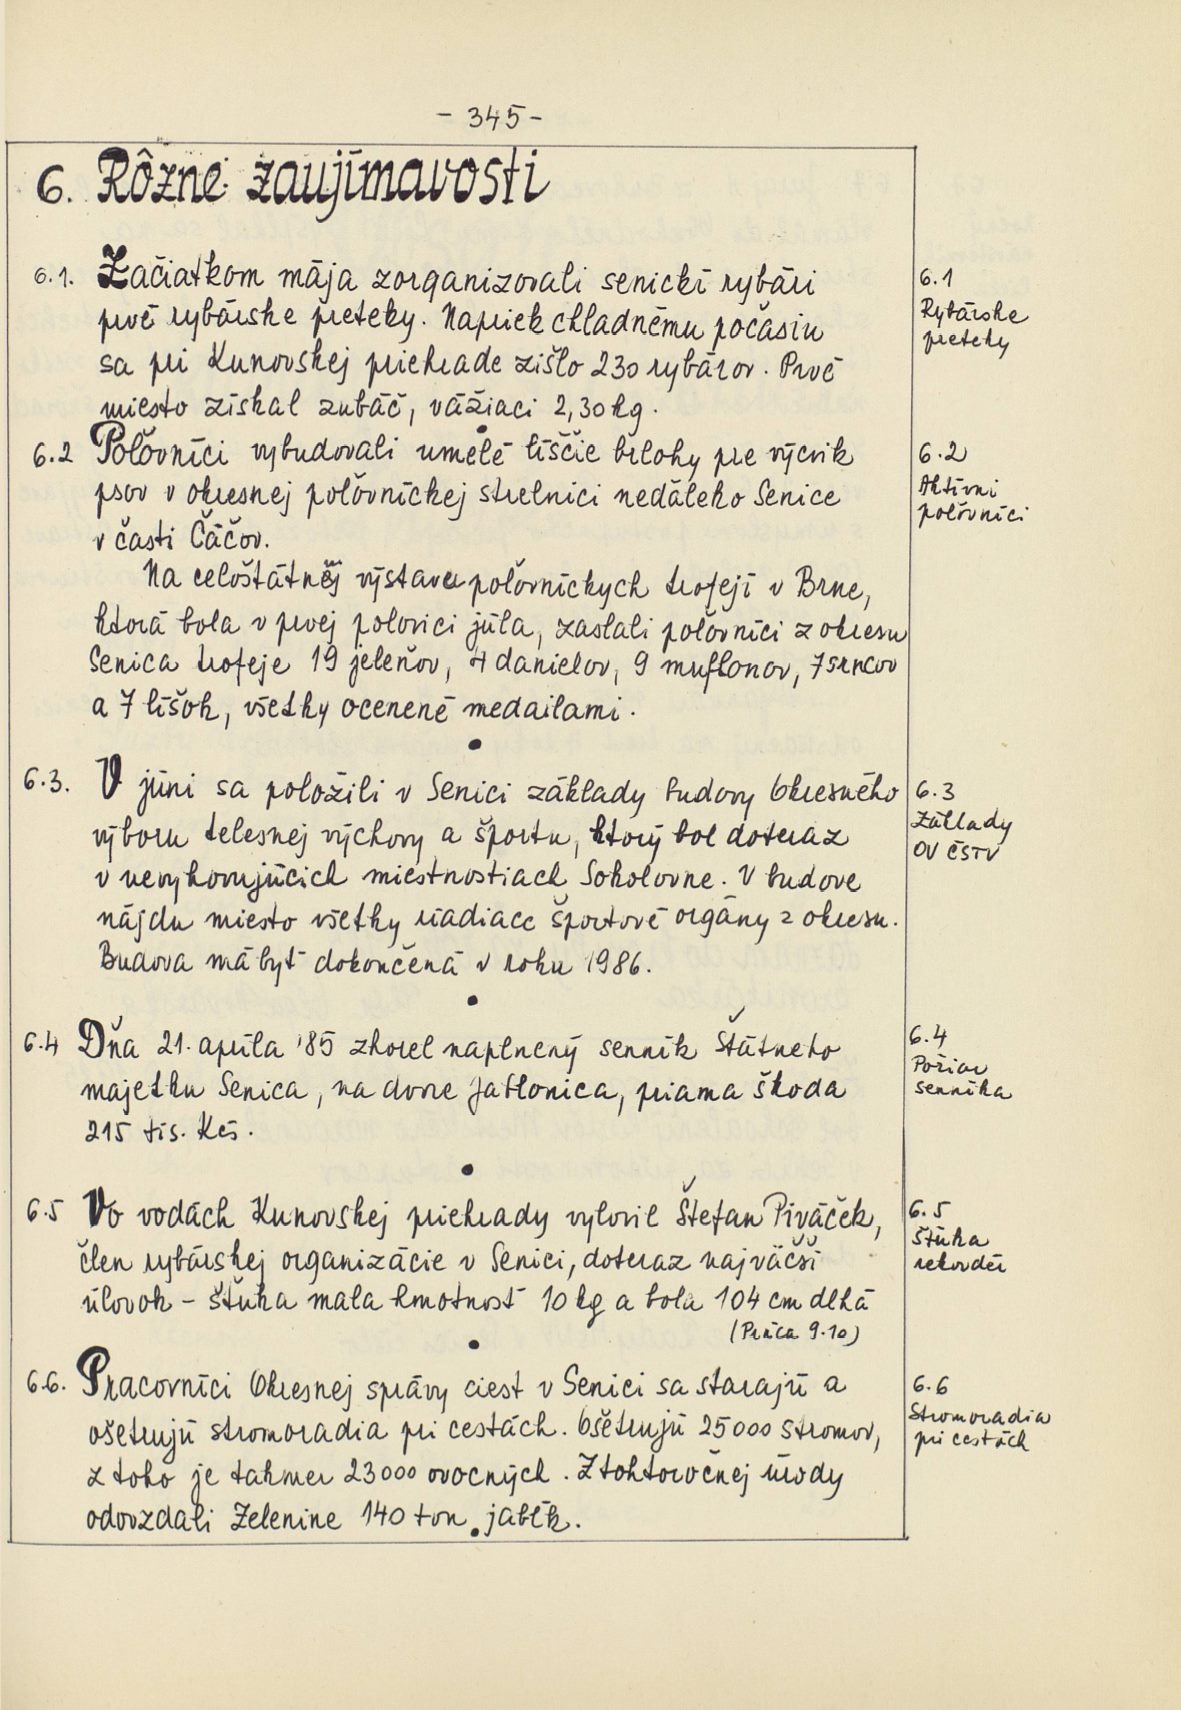 - 345 -
6. Rôzne zaujímavosti
6.1. Začiatkom mája zorganizovali senickí rybári
prvé rybárske preteky. Napriek chladnému počasiu
sa pri Kunovskej priehrade zišlo 230 rybárov. Prvé
miesto získal zubáč, vážiaci 2,30 kg.
6.1
Rybárske
preteky
6.2 Poľovníci vybudovali umelé líščie brlohy pre výcvik
psov v okresnej poľovníckej strelnici neďaleko Senice
v časti Čáčov.
Na celoštátnej výstave poľovníckych trofejí v Brne,
ktorá bola v prvej polovici júla, zaslali poľovníci z okresu
Senica trofeje 19 jeleňov, 4 danielov, 9 muflonov, 7 srncov
a 7 líšok, všetky ocenené medailami.
6.2
Aktívni
poľovníci
6.3. V júni sa položili v Senici základy budovy Okresného
výboru telesnej výchovy a športu, ktorý bol doteraz
v nevyhovujúcich miestnostiach Sokolovne. V budove
nájdu miesto všetky riadiace športové orgány z okresu.
Budova má byť dokončená v roku 1986.
6.3
Základy
OV ČSTV
6.4 Dňa 21. apríla '85 zhorel naplnený senník Štátneho
majetku Senica, na dvore Jablonica, priama škoda
215 tis. Kčs.
6.4
Požiar
senníka
6.5 Vo vodách Kunovskej priehrady vylovil Štefan Piváček,
člen rybárskej organizácie v Senici, doteraz najväčší
úlovok - šťuka mala hmotnosť 10 kg a bola 104 cm dlhá
(Práca 9.10)
6.5
Šťuka
rekordér
6.6. Pracovníci Okresnej správy ciest v Senici sa starajú a
ošetrujú stromoradia pri cestách. Ošetrujú 25 000 stromov,
z toho je takmer 23 000 ovocných. Z tohtoročnej úrody
odovzdali Zelenine 140 ton jabĺk.
6.6
Stromoradia
pri cestách